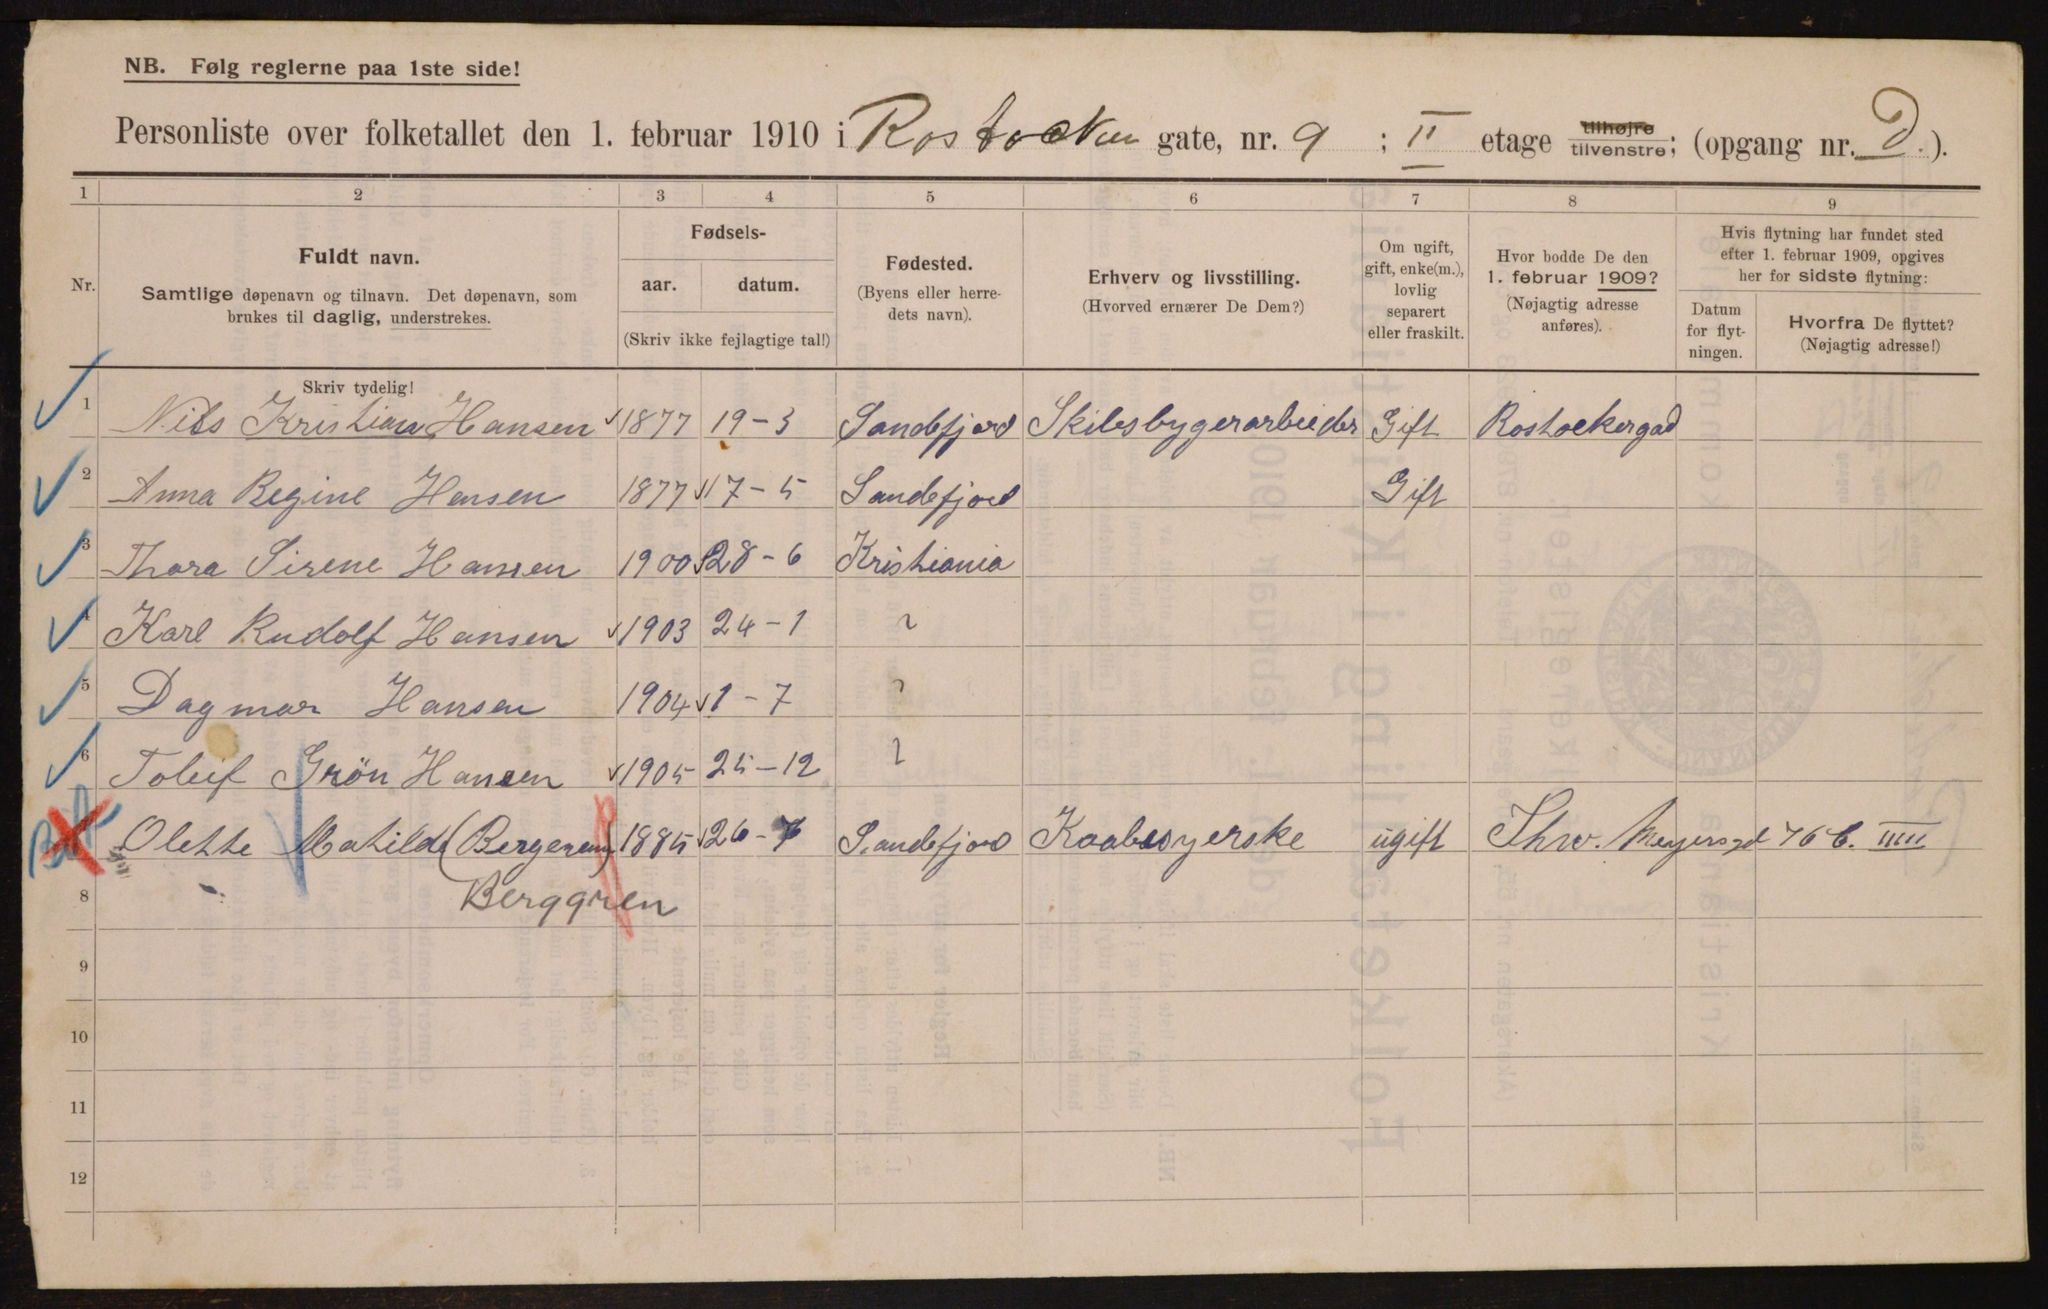 NB. Følg reglerne paa 1ste side!
Personliste over folketallet den 1. februar 1910 i Rostocker gate, nr. 9 ; II etage tilhøjre tilvenstre; (opgang nr. D.).
1 2 3 4 5 6 7 8 9
Nr.
Fuldt navn.
Samtlige døpenavn og tilnavn. Det døpenavn, som
brukes til daglig, understrekes.
Fødsels-
aar. datum.
(Skriv ikke fejlagtige tal!)
Fødested.
(Byens eller herre-
dets navn).
Erhverv og livsstilling.
(Hvorved ernærer De Dem?)
Om ugift,
gift, enke(m.),
lovlig
separert
eller fraskilt.
Hvor bodde De den
1. februar 1909?
(Nøjagtig adresse
anføres).
Hvis flytning har fundet sted
efter 1. februar 1909, opgives
her for sidste flytning:
Datum
for flyt-
ningen.
Hvorfra De flyttet?
(Nøjagtig adresse!)
Skriv tydelig!
1 Nils Kristian Hansen 1877 19-3 Sandefjord Skibsbygerarbeider Gift Rostockergad
2 Anna Regine Hansen 1877 17-5 Sandefjord Gift
3 Thora Sirene Hansen 1900 28-6 Kristiania
4 Karl Rudolf Hansen 1903 24-1 "
5 Dagmar Hansen 1904 1-7 "
6 Toleif Grön Hansen 1905 25-12 "
Olette Matilde (Bergeren) 1885 26-7 Sandefjord Kaabesyerske ugift Thv. Meyersgd 76 C. IIII
8 Berggren
9
10
11
12